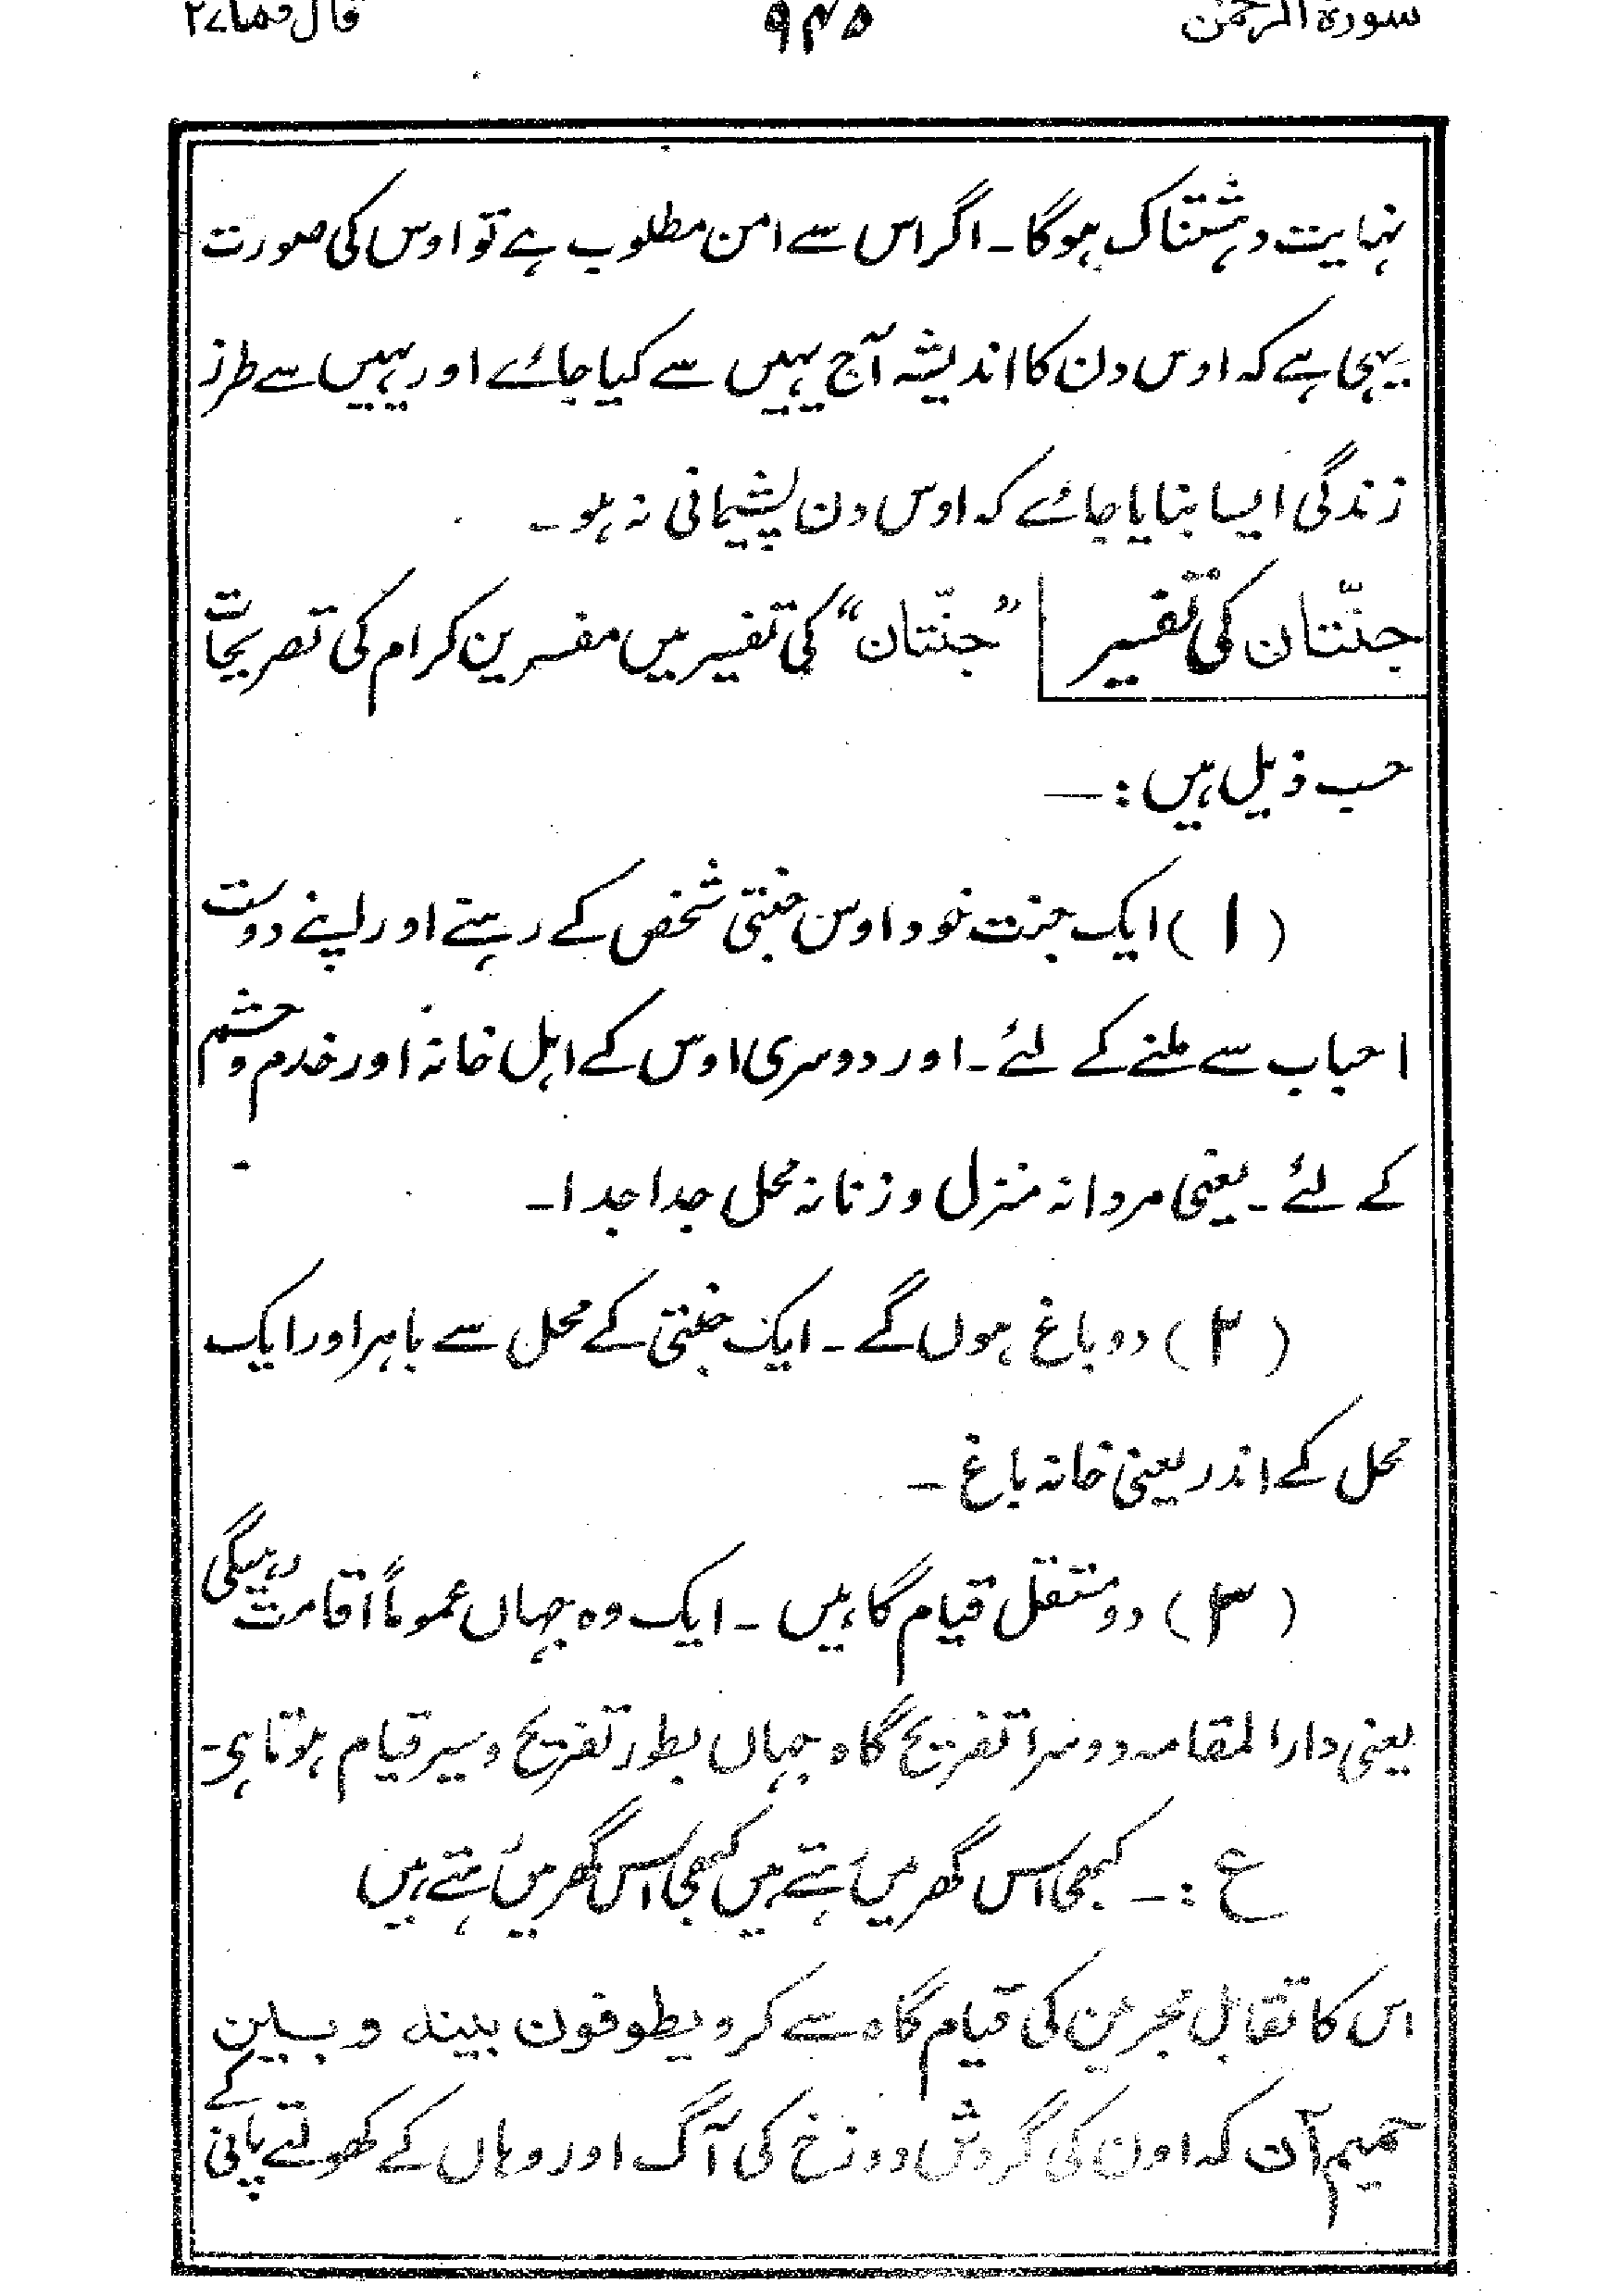 سورۃ الرحمٰن ۹۴۵ قال فما ۲۷
نہایت دہشتناک ہوگا۔ اگر اس سے امن مطلوب ہے تو اوس کی صورت
یہی ہے کہ اوس دن کا اندیشہ آج یہیں سے کیا جائے اور یہیں سے طرز
زندگی ایسا بنایا جائے کہ اوس دن پشیمانی نہ ہو۔
جنّتان کی تفسیر | ”جنّتان“ کی تفسیر میں مفسرین کرام کی تصریحات
حسب ذیل ہیں:—
(۱) ایک جنت خود اوس جنتی شخص کے رہنے اور اپنے دوست
احباب سے ملنے کے لئے۔ اور دوسری اوس کے اہل خانہ اور خدم و حشم
کے لئے۔ یعنی مردانہ منزل و زنانہ محل جدا جدا۔
(۲) دو باغ ہوں گے۔ ایک جنتی کے محل سے باہر اور ایک
محل کے اندر یعنی خانہ باغ۔
(۳) دو مستقل قیام گاہیں۔ ایک وہ جہاں عموماً اقامت رہیگی
یعنی دار المقامہ دوسرا تفریح گاہ جہاں بطور تفریح و سیر قیام ہوتا ہی۔
ع:۔ کبھی اس گھر میں رہتے ہیں کبھی اس گھر میں رہتے ہیں
اس کا تقابل مجرمین کی قیام گاہ سے کرو یطوفون بینہا و بین
حمیم آن کہ اون کی گردش دوزخ کی آگ اور وہاں کے کھولتے پانی کے